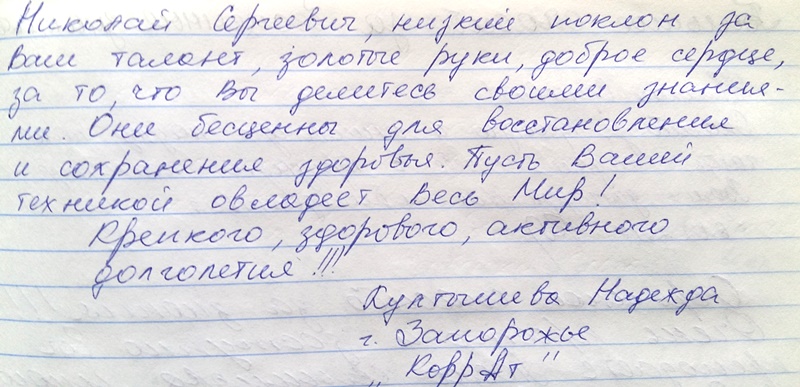 Николай Сергеевич, низкий поклон за
Ваш талант, золотые руки, доброе сердце,
за то, что Вы делитесь своими знания-
ми. Они бесценны для восстановления
и сохранения здоровья. Пусть Вашей
техникой овладеет Весь Мир!
Крепкого, здорового, активного
долголетия!!!
Култышева Надежда
г. Запорожье
„КоррАт"